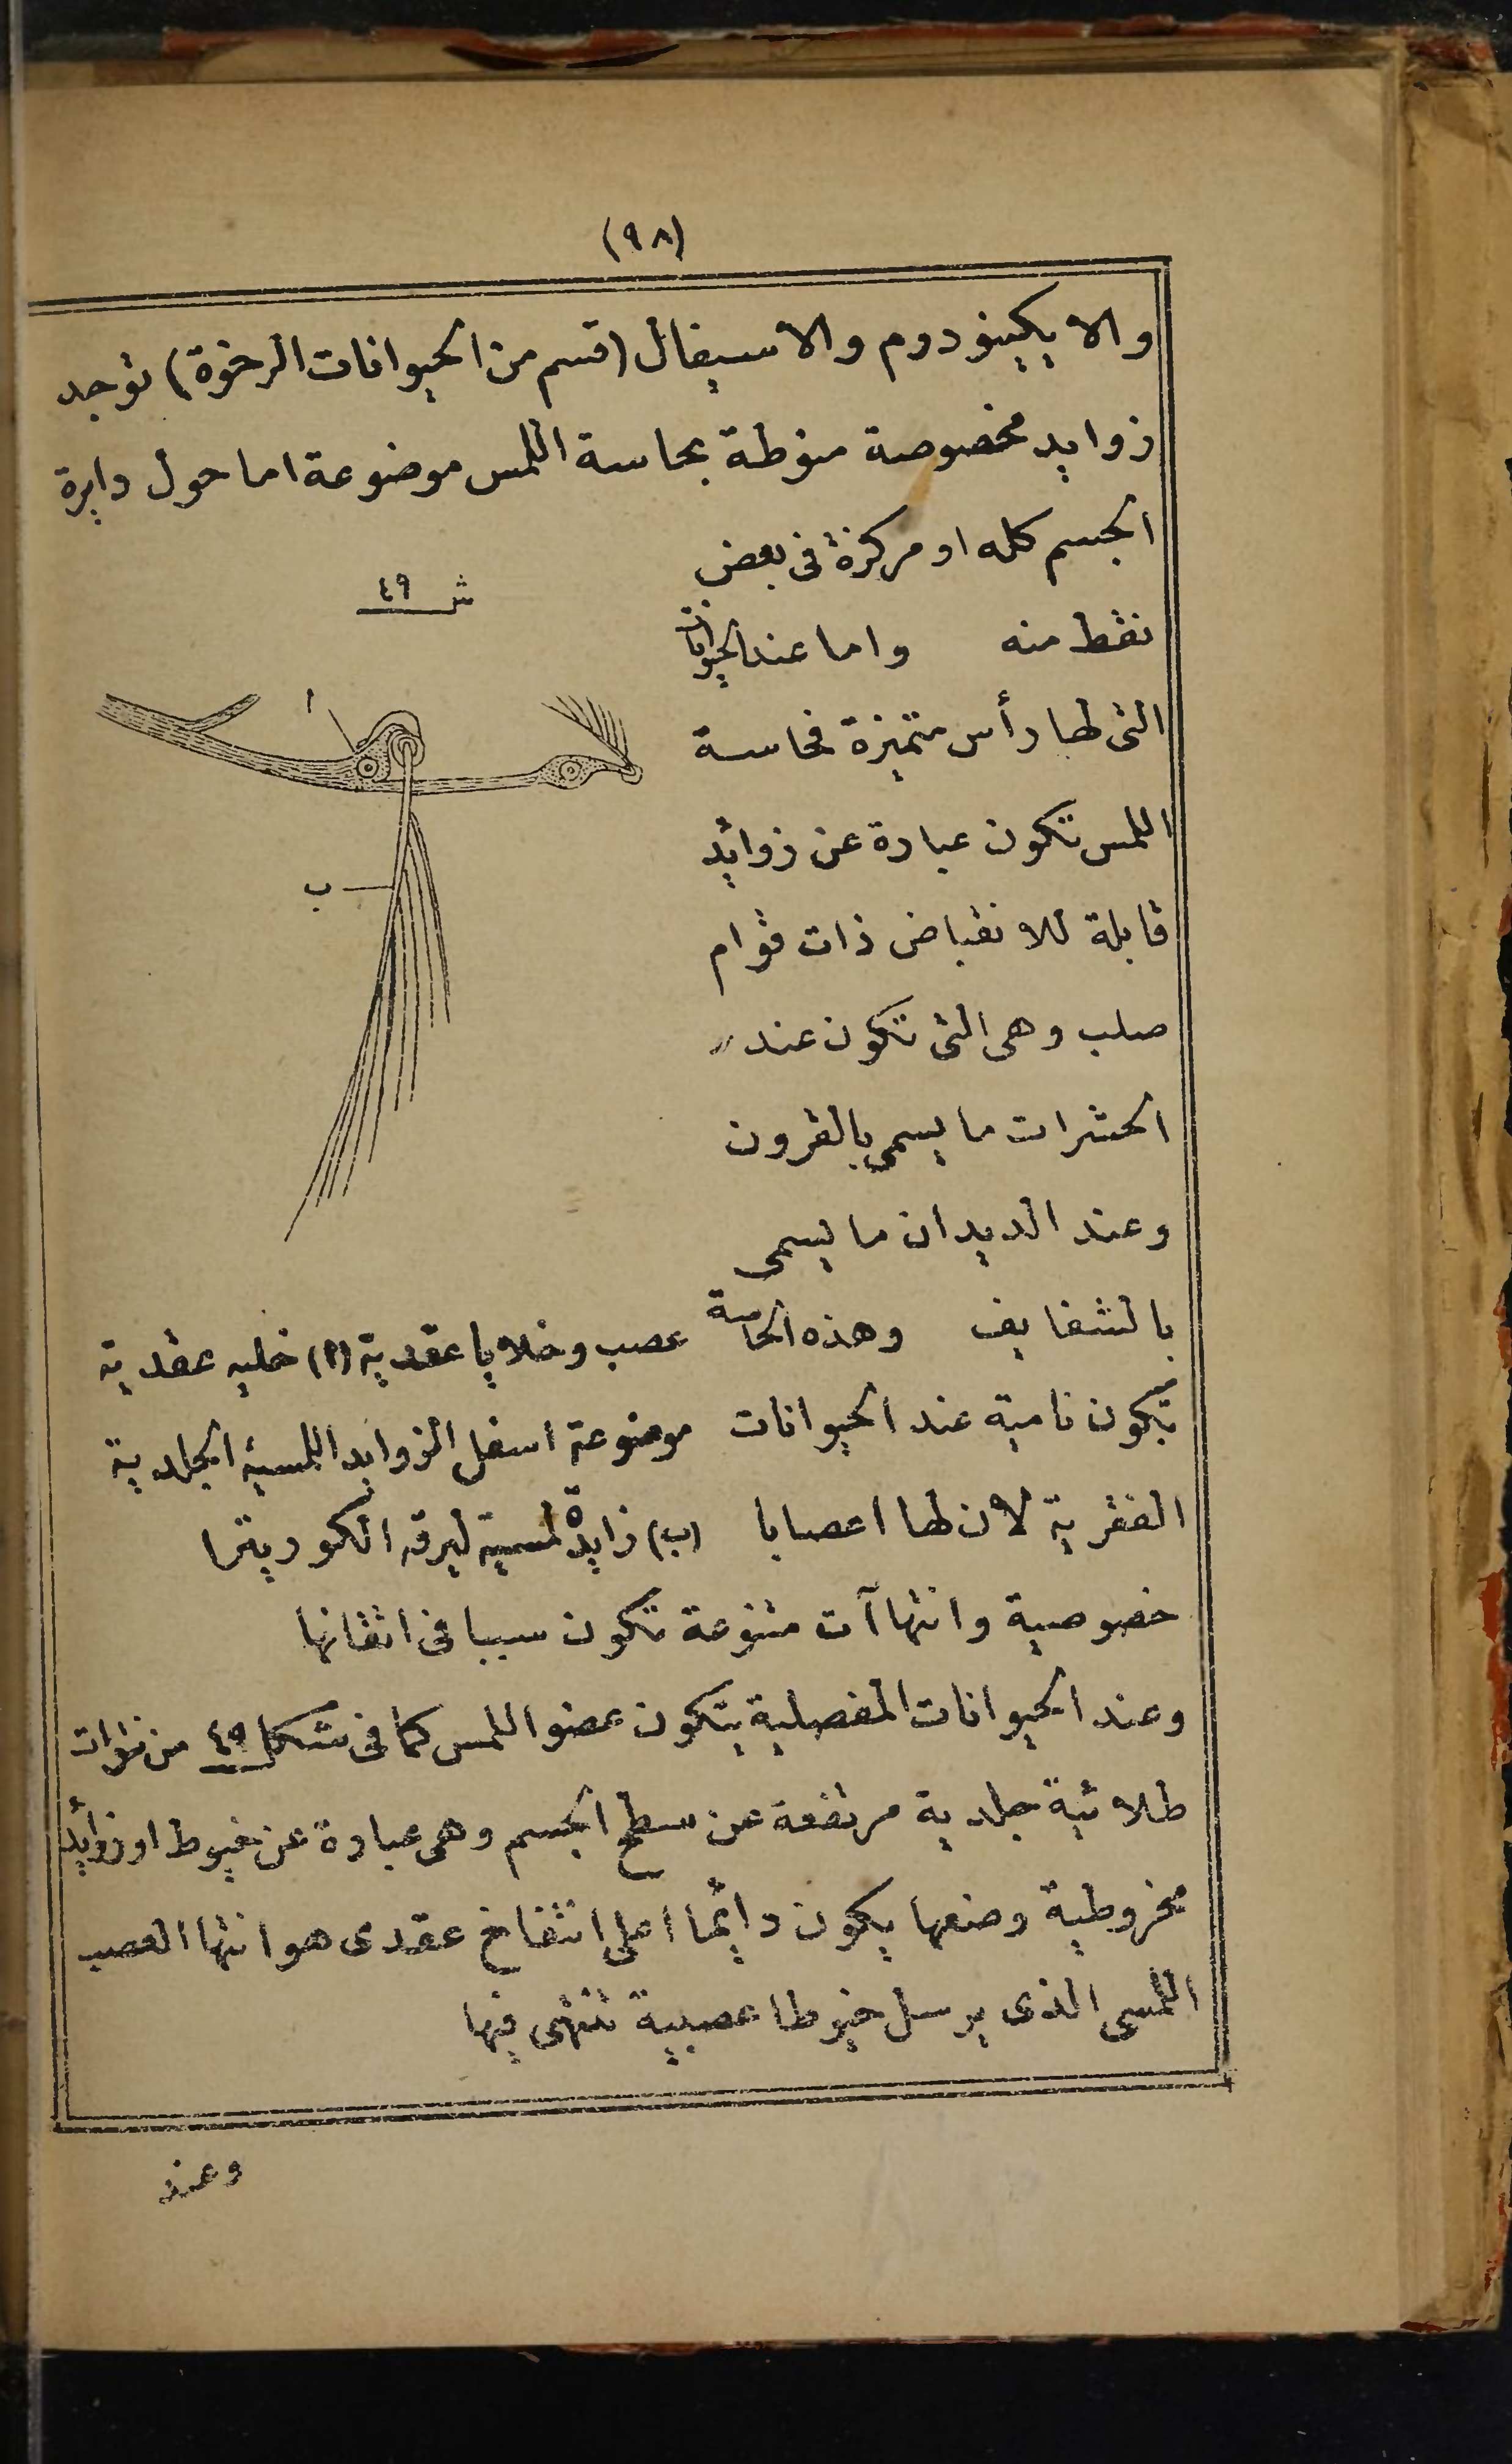 (٩٨)
والايكينودوم والاسيفال (قسم من الحيوانات الرخوة) توجد
زوايد مخصوصة منوطة بحاسة اللمس موضوعة اما حول دايرة
الجسم كله او مركزة فى بعض
نقط منه واما عند الحيوانات
التى لها رأس متميزة فحاسة
اللمس تكون عبارة عن زوائد
قابلة للانقباض ذات قوام
صلب وهى التى تكون عند
الحشرات ما يسمى بالقرون
وعند الديدان ما يسمى
بالشفايف وهذه الحاسة
تكون نامية عند الحيوانات
الفقرية لان لها اعصابا
ش ٤٩
أ
ب
عصب وخلايا عقدية (ا) خليه عقدية
موضوعة اسفل الزوايد اللمسية الجلدية
(ب) زايدة لمسية ليرقه الكوريترا
خصوصية وانتهاآت متنوعة تكون سببا فى اتقانها
وعند الحيوانات المفصلية يتكون عضو اللمس كما فى شكل ٤٩ من نتوات
طلائية جلدية مرتفعة عن سطح الجسم وهى عبارة عن خيوط او زوائد
مخروطية وضعها يكون دائما اعلى انتفاخ عقدى هو انتها العصب
اللمسى الذى يرسل خيوطا عصبية تنتهى فيها
وعند